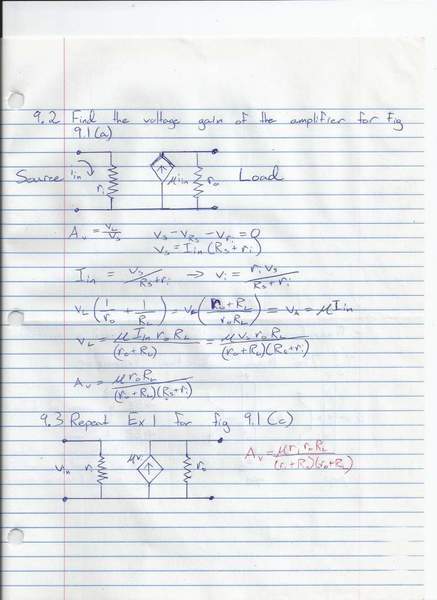 9.2 Find the voltage gain of the amplifier for Fig
9.1(a)
Source i_in r_i μi_in r_o Load
A_v = V_L/V_s    V_s - V_Rs - V_ri = 0
V_s = I_in (R_s + r_i)
I_in = V_s/(R_s + r_i) → V_i = r_i V_s/(R_s + r_i)
V_L (1/r_o + 1/R_L) = V_L ((r_o + R_L)/(r_o R_L)) = = μ I_in
V_L = μ I_in r_o R_L/(r_o + R_L) = μ V_s r_o R_L/((r_o + R_L)(R_s + r_i))
A_v = μ r_o R_L/((r_o + R_L)(R_s + r_i))
9.3 Repeat Ex 1 for fig 9.1(c)
V_in r_i μV_i r_o
A_v = μ r_i r_o R_L/((r_i + R_s)(r_o + R_L))